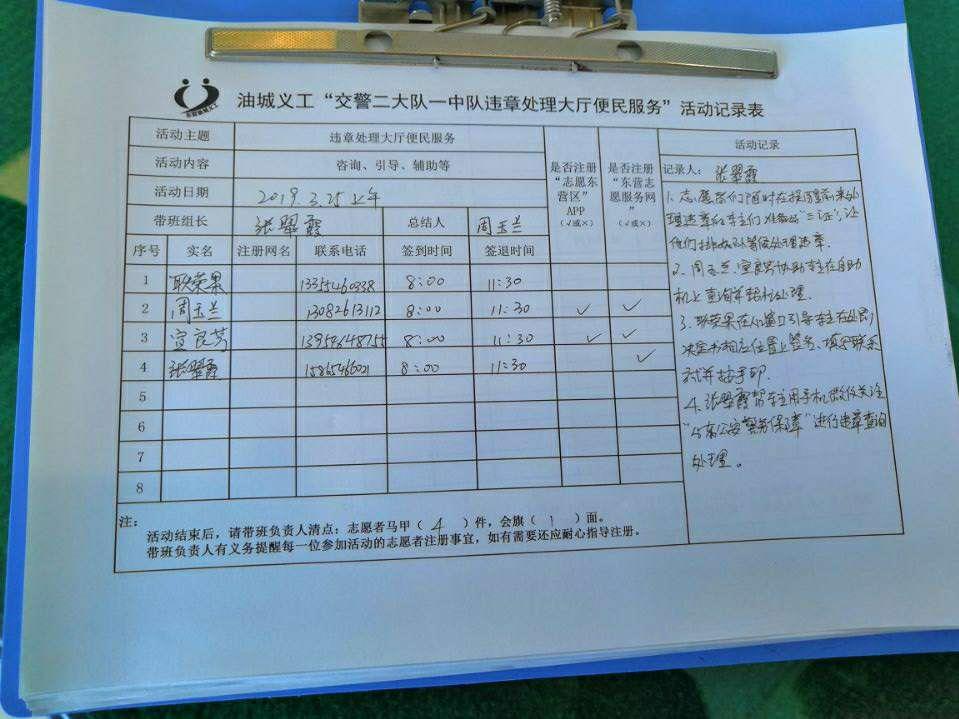 油城义工“交警二大队一中队违章处理大厅便民服务”活动记录表
活动主题 违章处理大厅便民服务
活动内容 咨询、引导、辅助等
活动日期 2019.3.25上午
带班组长 张翠霞 总结人 周玉兰
是否注册“志愿东营区”APP(√或×)
是否注册“东营志愿服务网”(√或×)
序号 实名 注册网名 联系电话 签到时间 签退时间
1 耿荣果 13355460338 8:00 11:30
2 周玉兰 13082613112 8:00 11:30 ✓ ✓
3 宜良芳 8:00 11:30 ✓ ✓
4 张翠霞 8:00 11:30 ✓
5
6
7
8
活动记录
记录人:张翠霞
1.志愿者们随时在提醒前来处
理违章的车主们准备好“三证”,让
他们排好队等候处理违章.
2.周玉兰、宜良芳协助车主在自助
机上查询并帮忙处理.
3.耿荣果在人工窗口引导车主在处罚
决定书相应位置上签名、填写联系
方式并按手印.
4.张翠霞帮车主用手机微信关注
公安警务保障”进行违章查询
处理。
注:
活动结束后,请带班负责人清点:志愿者马甲(4)件,会旗(1)面。
带班负责人有义务提醒每一位参加活动的志愿者注册事宜,如有需要还应耐心指导注册。